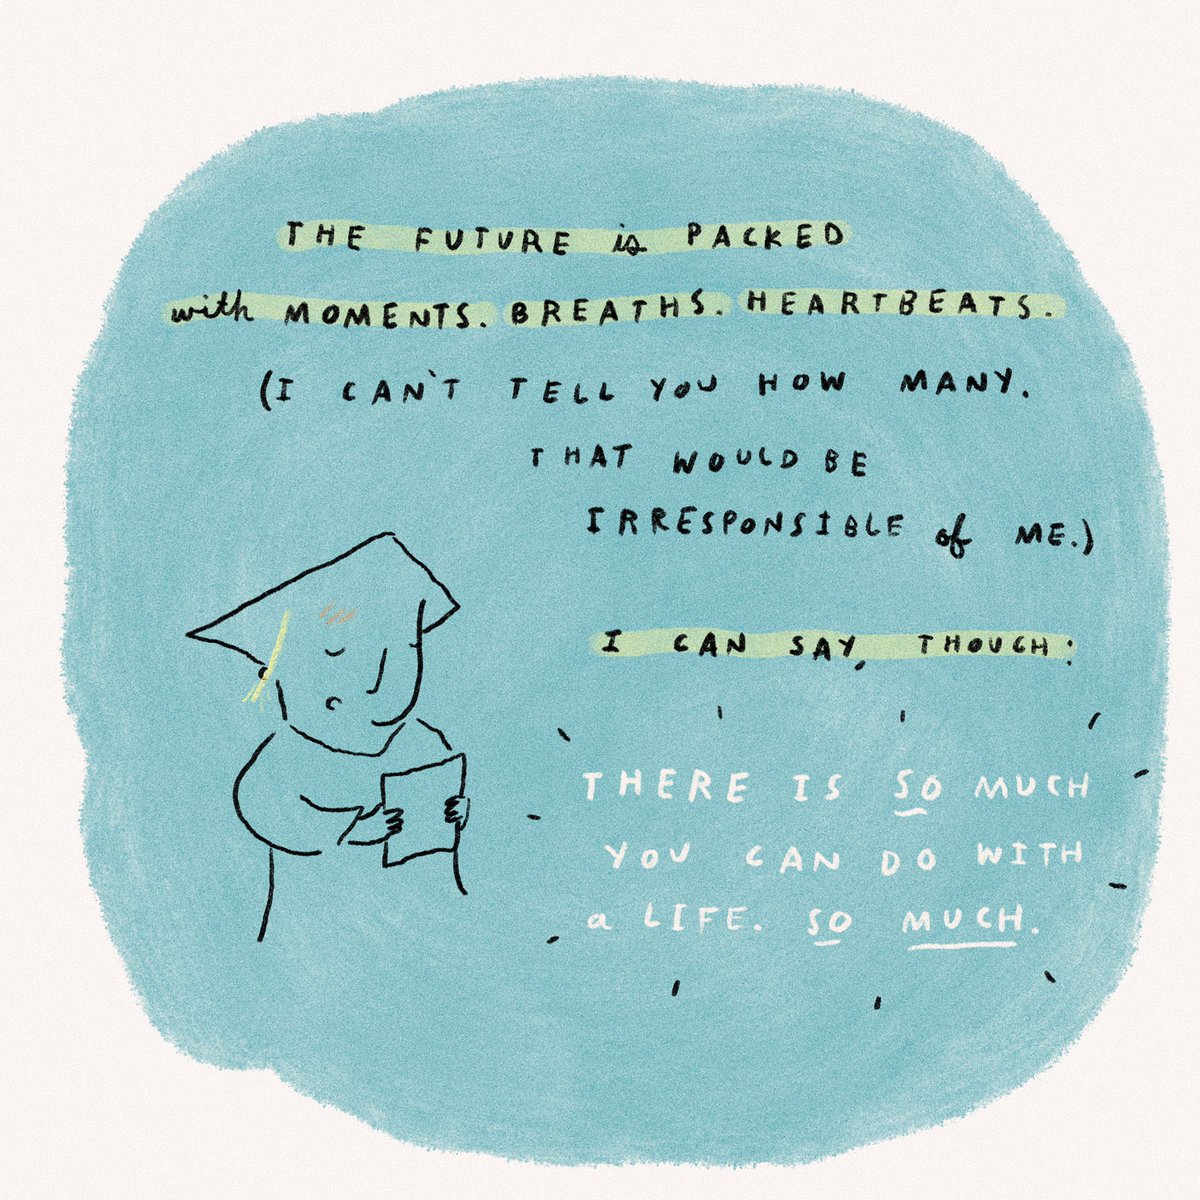 THE FUTURE is PACKED
with MOMENTS. BREATHS. HEARTBEATS.
(I CAN'T TELL YOU HOW MANY.
THAT WOULD BE
IRRESPONSIBLE of ME.)
I CAN SAY, THOUGH:
THERE IS SO MUCH
YOU CAN DO WITH
a LIFE. SO MUCH.